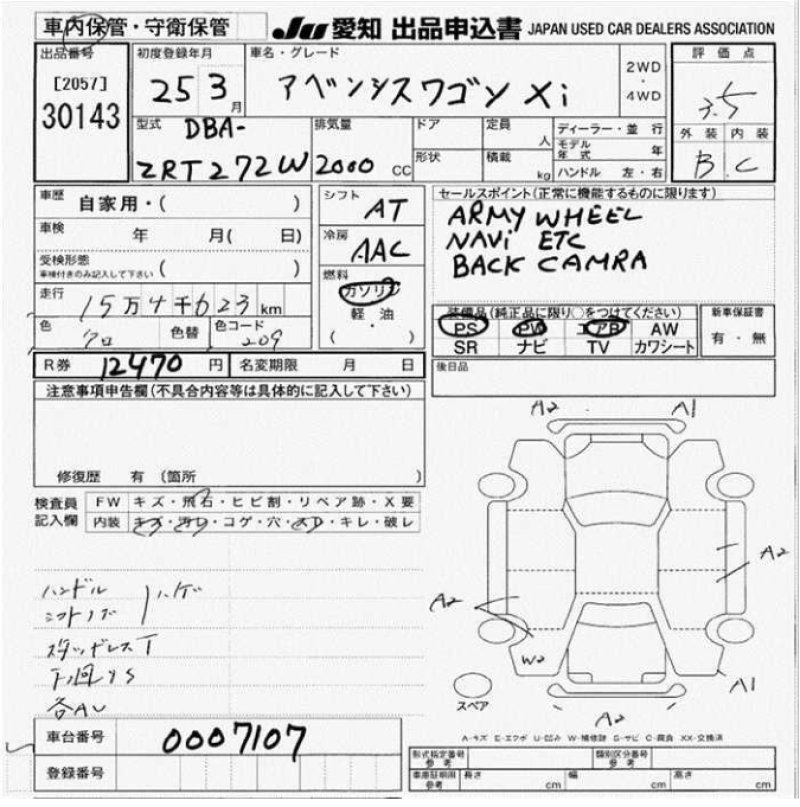 車内保管・守衛保管
JU 愛知 出品申込書 JAPAN USED CAR DEALERS ASSOCIATION
出品番号
[2057]
30143
初度登録年月
25 3 月
車名・グレード
アベンシスワゴン Xi
2WD
・
4WD
評価点
3.5
外装 内装
B C
型式
DBA-
ZRT272W
排気量
2000 CC
ドア
形状
定員
人
積載
kg
ディーラー・並行
モデル
年式 年
ハンドル 左・右
車歴
自家用・( )
車検
年 月( 日)
受検形態
車検付きのみ記入して下さい ( )
走行
15万4千623 km
色
クロ
色替
色コード
209
シフト
AT
冷房
AAC
燃料
ガソリン
軽油
( ・ )
セールスポイント(正常に機能するものに限ります)
ARMY WHEEL
NAVi ETC
BACK CAMRA
装備品(純正品に限り○をつけてください)
PS PW エアB AW
SR ナビ TV カワシート
新車保証書
有・無
R券 12470 円
名変期限 月 日
後日品
注意事項申告欄(不具合内容等は具体的に記入して下さい)
修復歴 有 (箇所 )
検査員
記入欄
FW キズ・飛石・ヒビ割・リペア跡・X要
内装 キズ・汚レ・コゲ・穴・スレ・キレ・破レ
ハンドル
シフトノブ
ハゲ
スタッドレスT
下廻りS
各AU
A2 A1
A2
A2
W2
A1
A2
スペア
A-キズ E-エクボ U-凹み W-補修跡 S-サビ C-腐食 XX-交換済
車台番号 0007107
登録番号
形式指定番号
参考
類別区分番号
参考
車庫証明用
参考
長さ cm
幅 cm
高さ cm